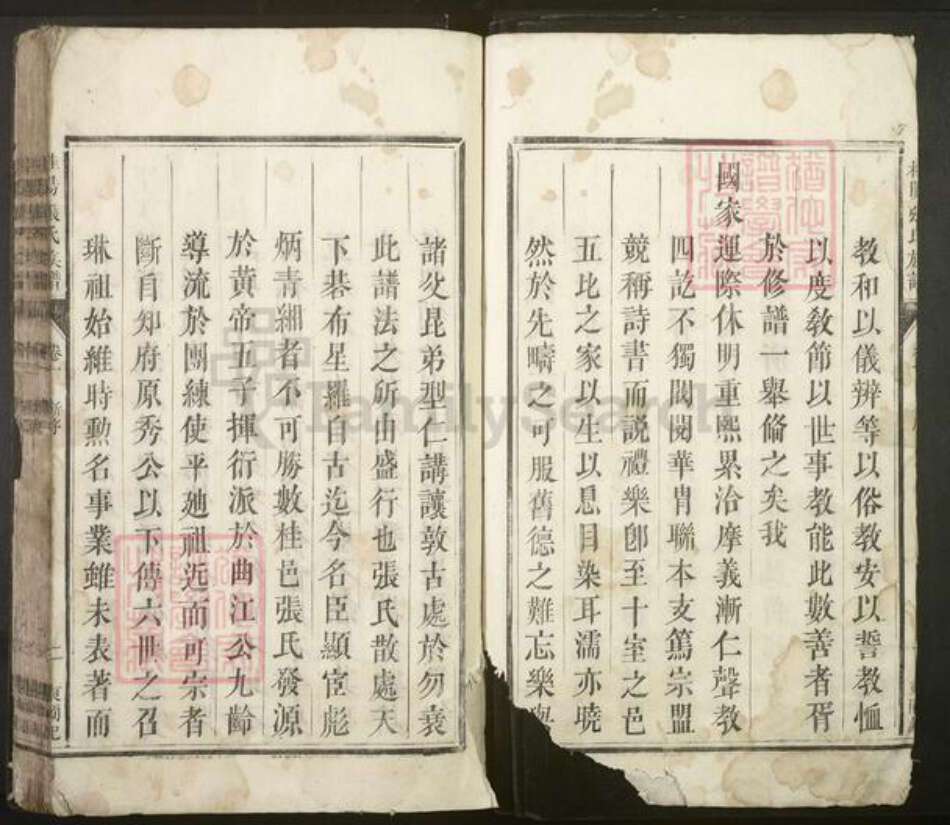 教和以儀辨等以俗教安以誓教恤
以度敎節以世事教能此數善者胥
於修譜一舉備之矣我
國家運際休明重熙累洽摩義漸仁聲教
四訖不獨閥閱華胄聯本支篤宗盟
競稱詩書而説禮樂卽至十室之邑
五比之家以生以息目染耳濡亦曉
然於先疇之可服舊德之難忘樂與
諸父昆弟型仁講讓敦古處於勿衰
此譜法之所由盛行也張氏散處天
下碁布星羅自古迄今名臣顯宦彪
炳青緗者不可勝數桂邑張氏發源
於黄帝五子揮衍派於曲江公九齡
導流於團練使平廸祖近而可宗者
斷自知府原秀公以下傳六世之召
琳祖始維時勲名事業雖未表著而
張氏族譜
卷一
FamilySearch